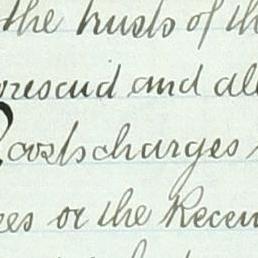 the trusts of th
and all
costs charges
ees or the Receiv